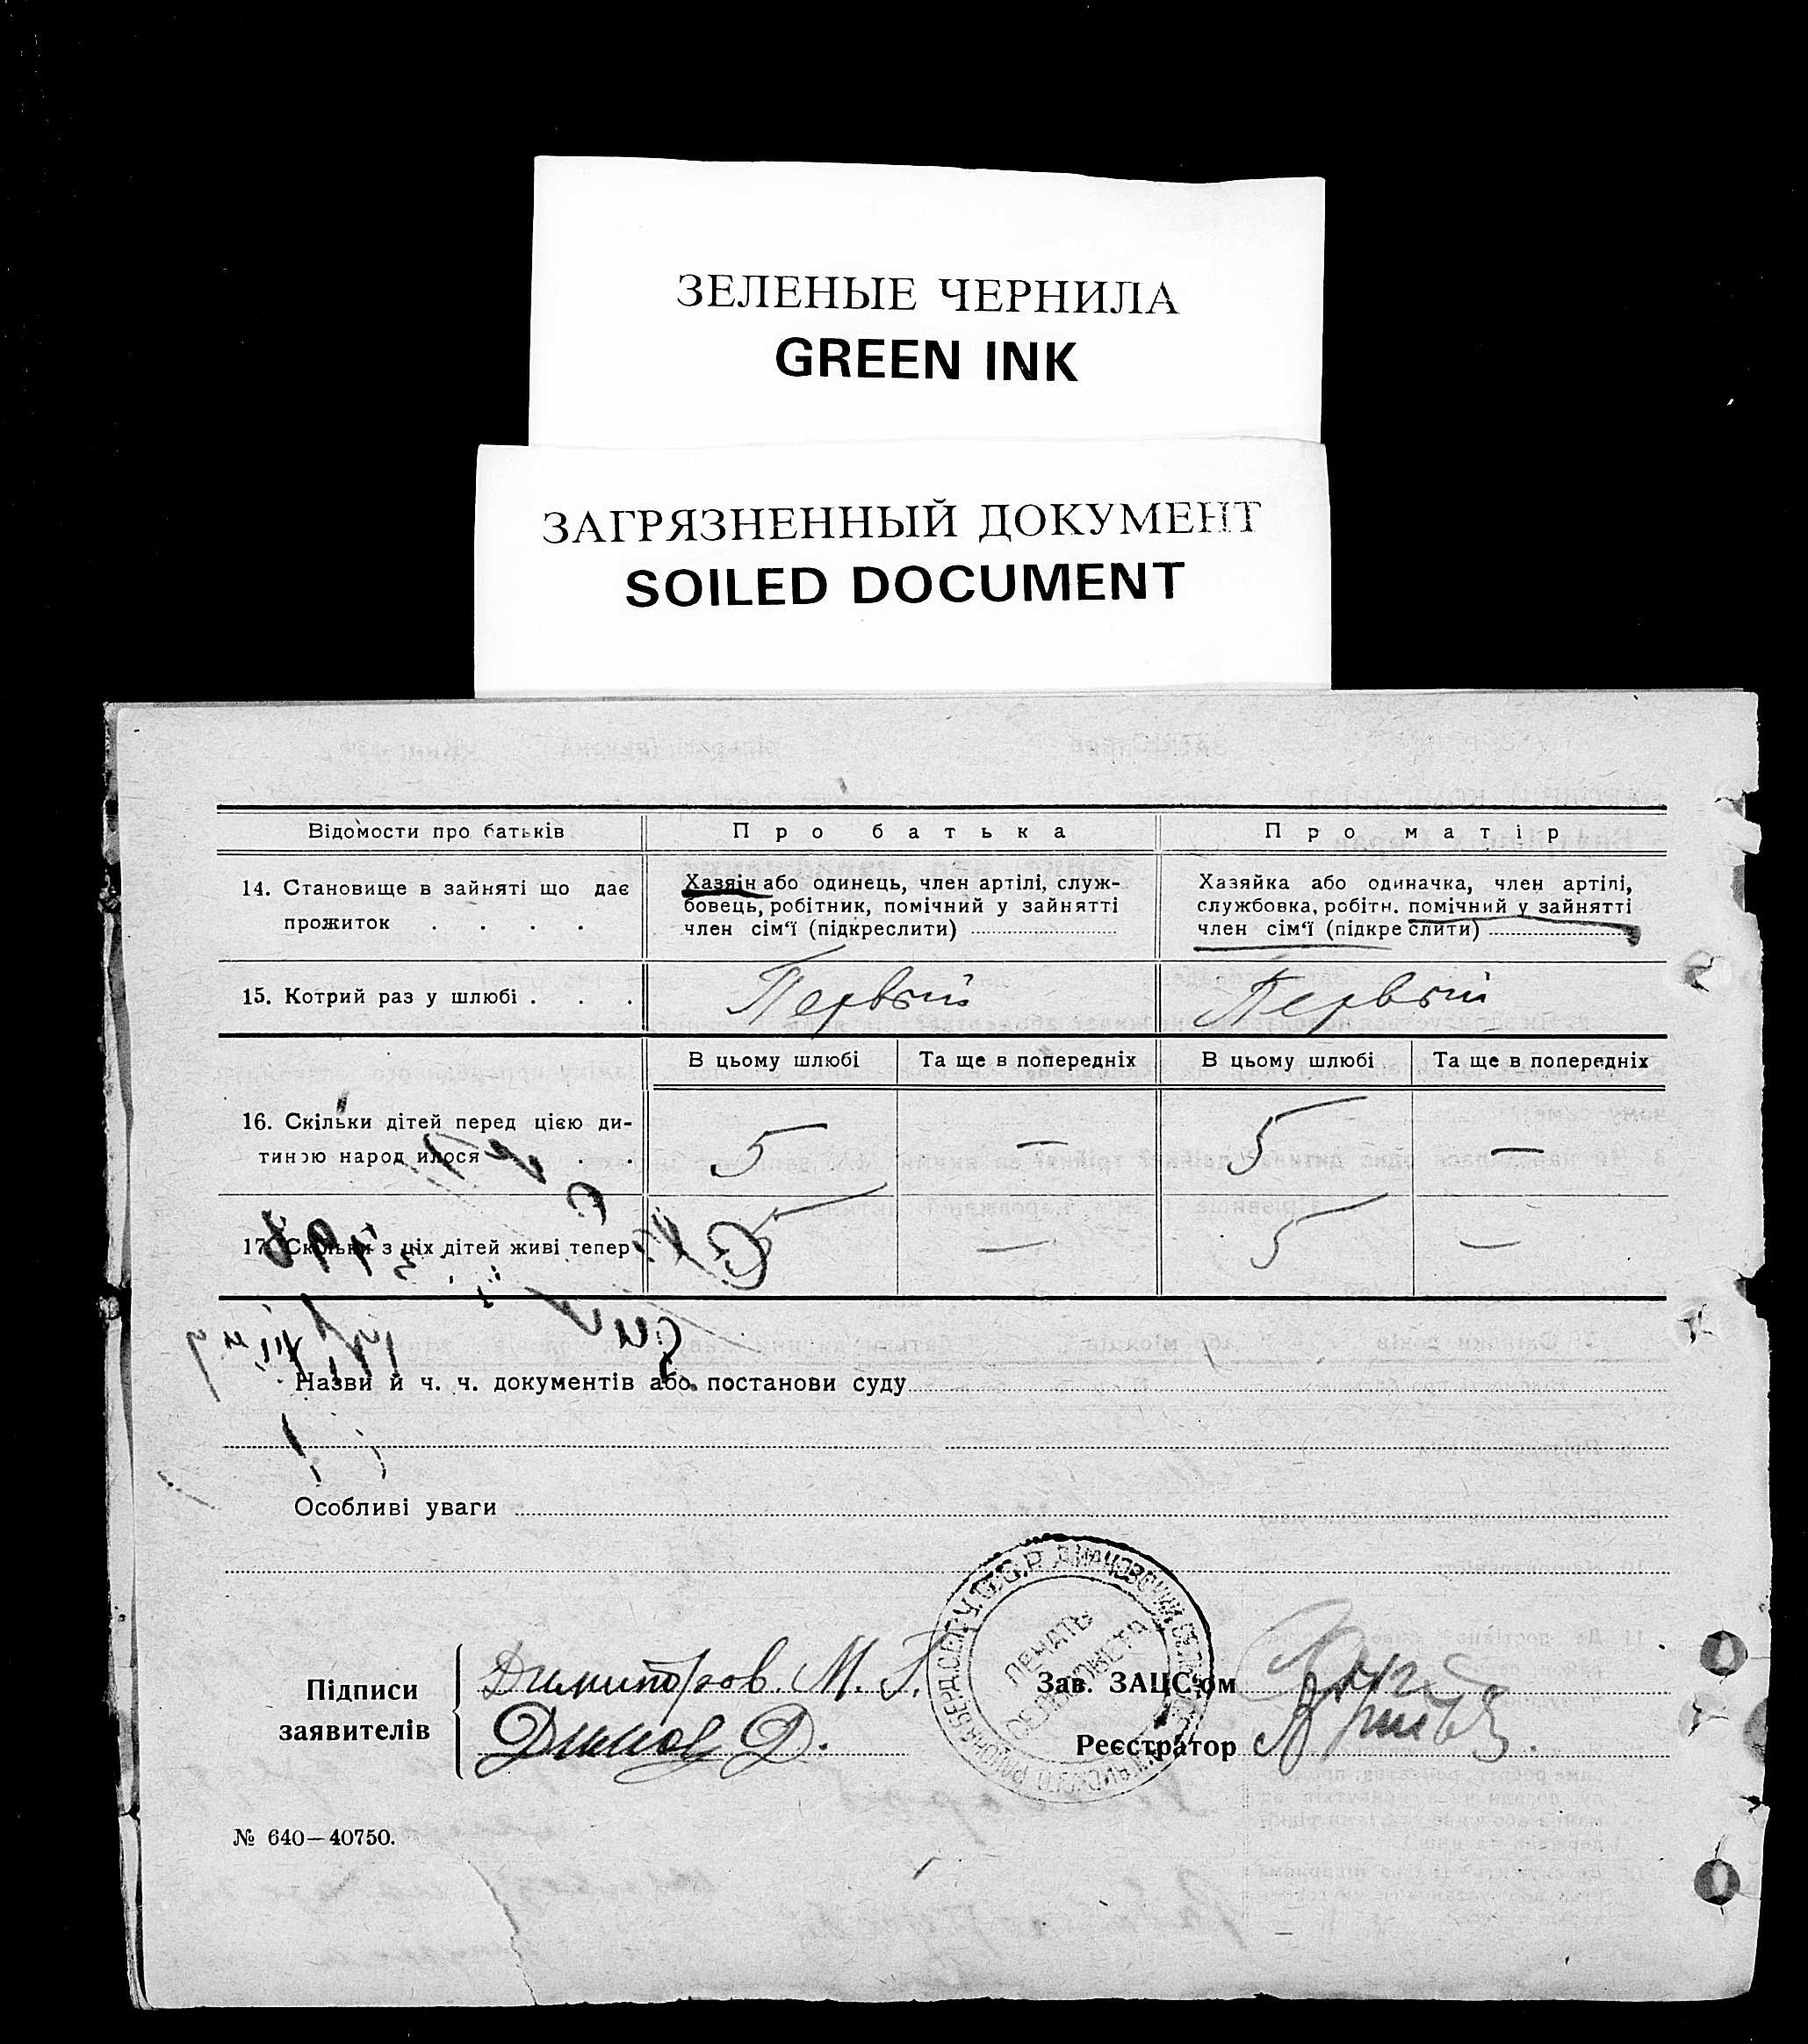 ЗЕЛЕНЫЕ ЧЕРНИЛА
GREEN INK
ЗАГРЯЗНЕННЫЙ ДОКУМЕНТ
SOILED DOCUMENT
Відомости про батьків
Про батька
Про матір
14. Становище в зайняті що дає
прожиток . . . .
Хазяїн або одинець, член артілі, служ-
бовець, робітник, помічний у зайнятті
член сім'ї (підкреслити)
Хазяйка або одиначка, член артілі,
службовка, робітн. помічний у зайнятті
член сім'ї (підкреслити)
15. Котрий раз у шлюбі . . .
Первый
Первый
В цьому шлюбі
Та ще в попередніх
В цьому шлюбі
Та ще в попередніх
16. Скільки дітей перед цією ди-
тиною народилося
5
—
5
—
17. Скільки з ціх дітей живі тепер
5
—
5
—
Назви й ч. ч. документів або постанови суду
Особливі уваги
Підписи
заявителів
Димитров М. Г.
Димов Д.
ПЕЧАТЬ
Зав. ЗАЦС'ом
Реєстратор
№ 640—40750.